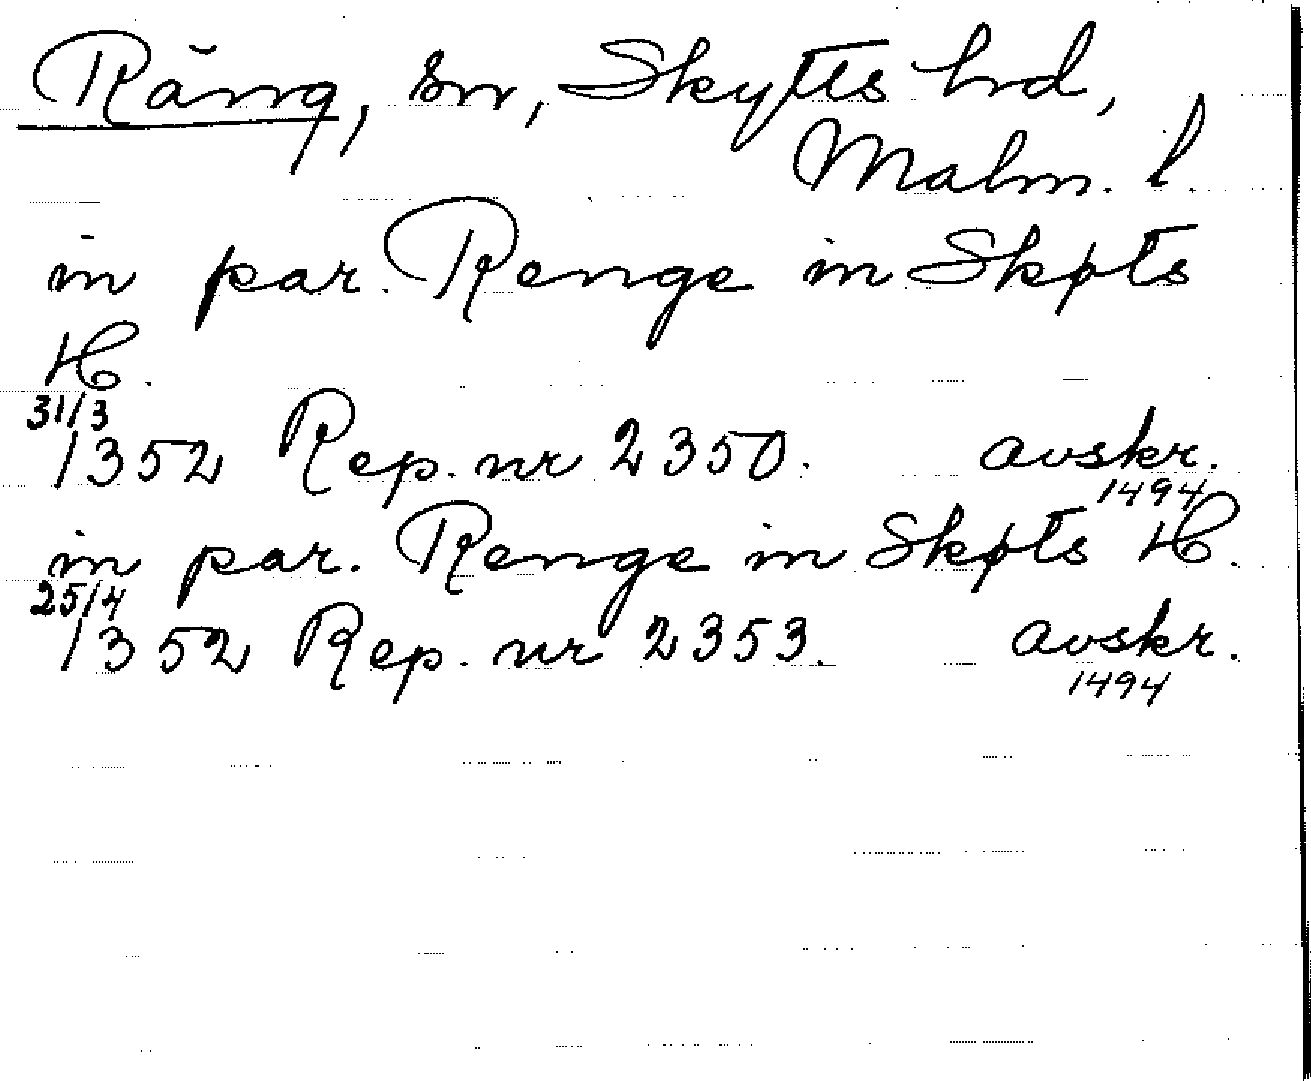 Räng, sn, Skytts hrd,
Malm. l.
in par. Renge in Skpts
H.
31/3
1352 Rep. nr 2350. avskr.
1494
in par. Renge in Skpts H.
25/4
1352 Rep. nr 2353. avskr.
1494